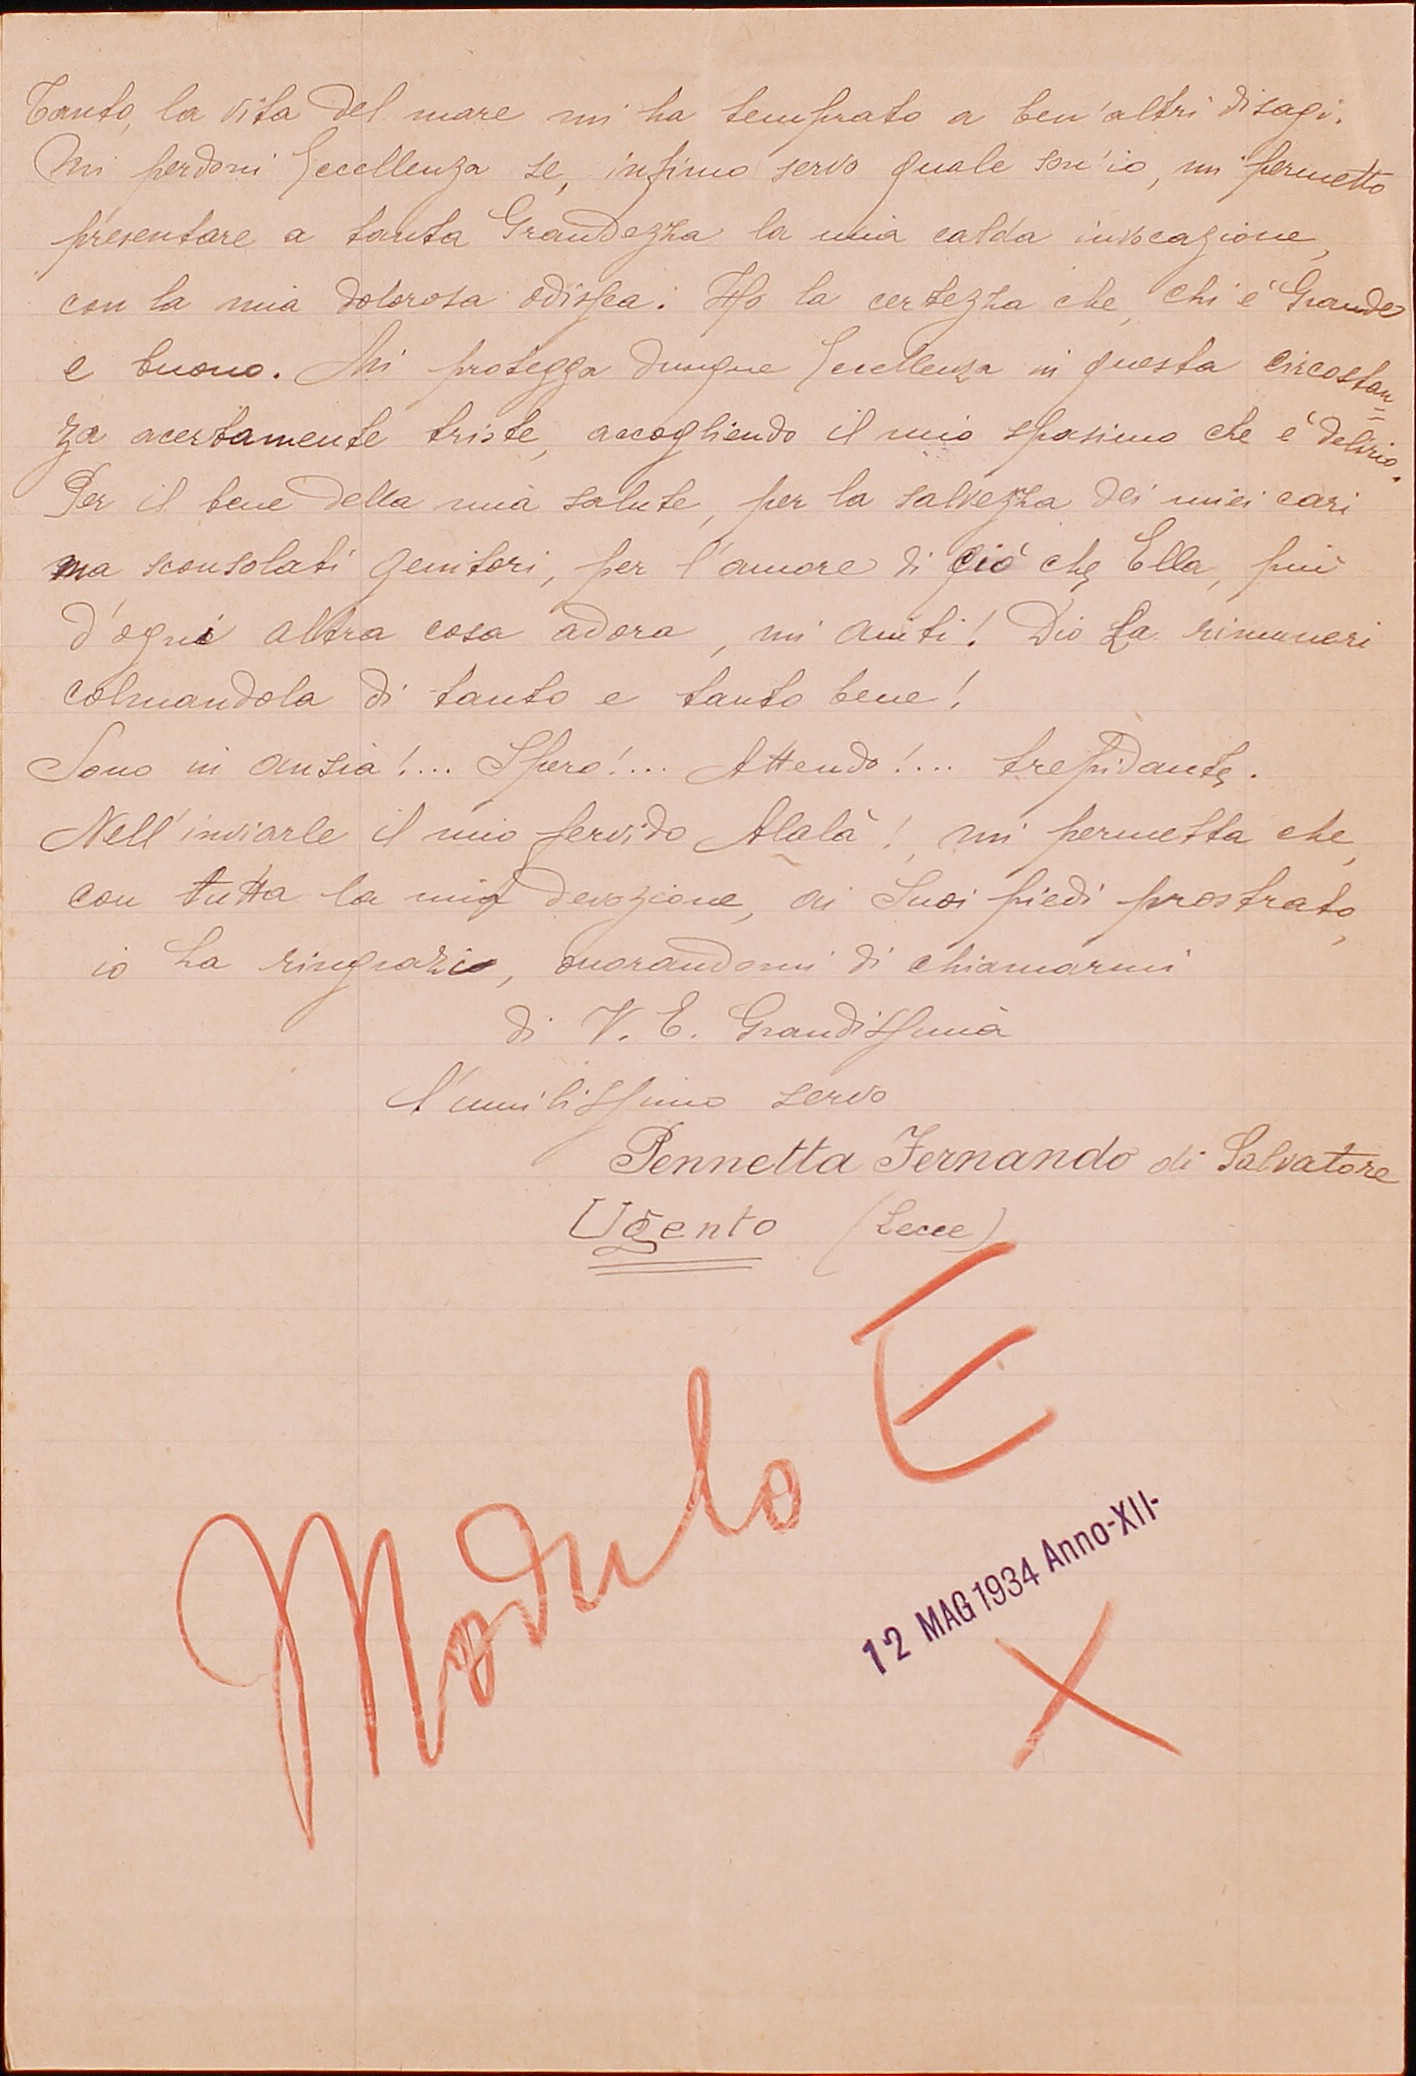 Tanto, la vita del mare mi ha temprato a ben'altri disagi.
Mi perdoni Eccellenza se, infimo servo quale son'io, mi permetto
presentare a tanta Grandezza la mia calda invocazione,
con la mia dolorosa odissea. Ho la certezza che, chi è Grande
e buono. Mi protegga dunque Eccellenza in questa circostan=
za acertamente triste, accogliendo il mio spasimo che è delirio.
Per il bene della mia salute, per la salvezza dei miei cari
ma sconsolati genitori, per l'amore di ciò che Ella, più
d'ogni altra cosa adora, mi aiuti! Dio La rimuneri
colmandola di tanto e tanto bene!
Sono in ansia!... Spero!... Attendo!... trepidante.
Nell'inviarle il mio fervido Alalà!, mi permetta che,
con tutta la mia devozione, ai Suoi piedi prostrato,
io La ringrazio, onorandomi di chiamarmi
di V. E. Grandissima
l'umilissimo servo
Pennetta Fernando di Salvatore
Ugento (Lecce)
Modulo E
12 MAG 1934 Anno-XII-
X